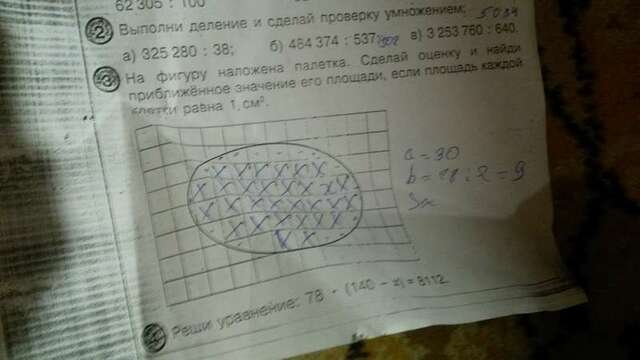 62 305 : 100
2 Выполни деление и сделай проверку умножением; 5034
а) 325 280 : 38; б) 484 374 : 537; 902 в) 3 253 760 : 640.
3 На фигуру наложена палетка. Сделай оценку и найди
приближённое значение его площади, если площадь каждой
клетки равна 1 см².
a = 30
b = 18 : 2 = 9
4 Реши уравнение: 78 · (140 – x) = 8112.